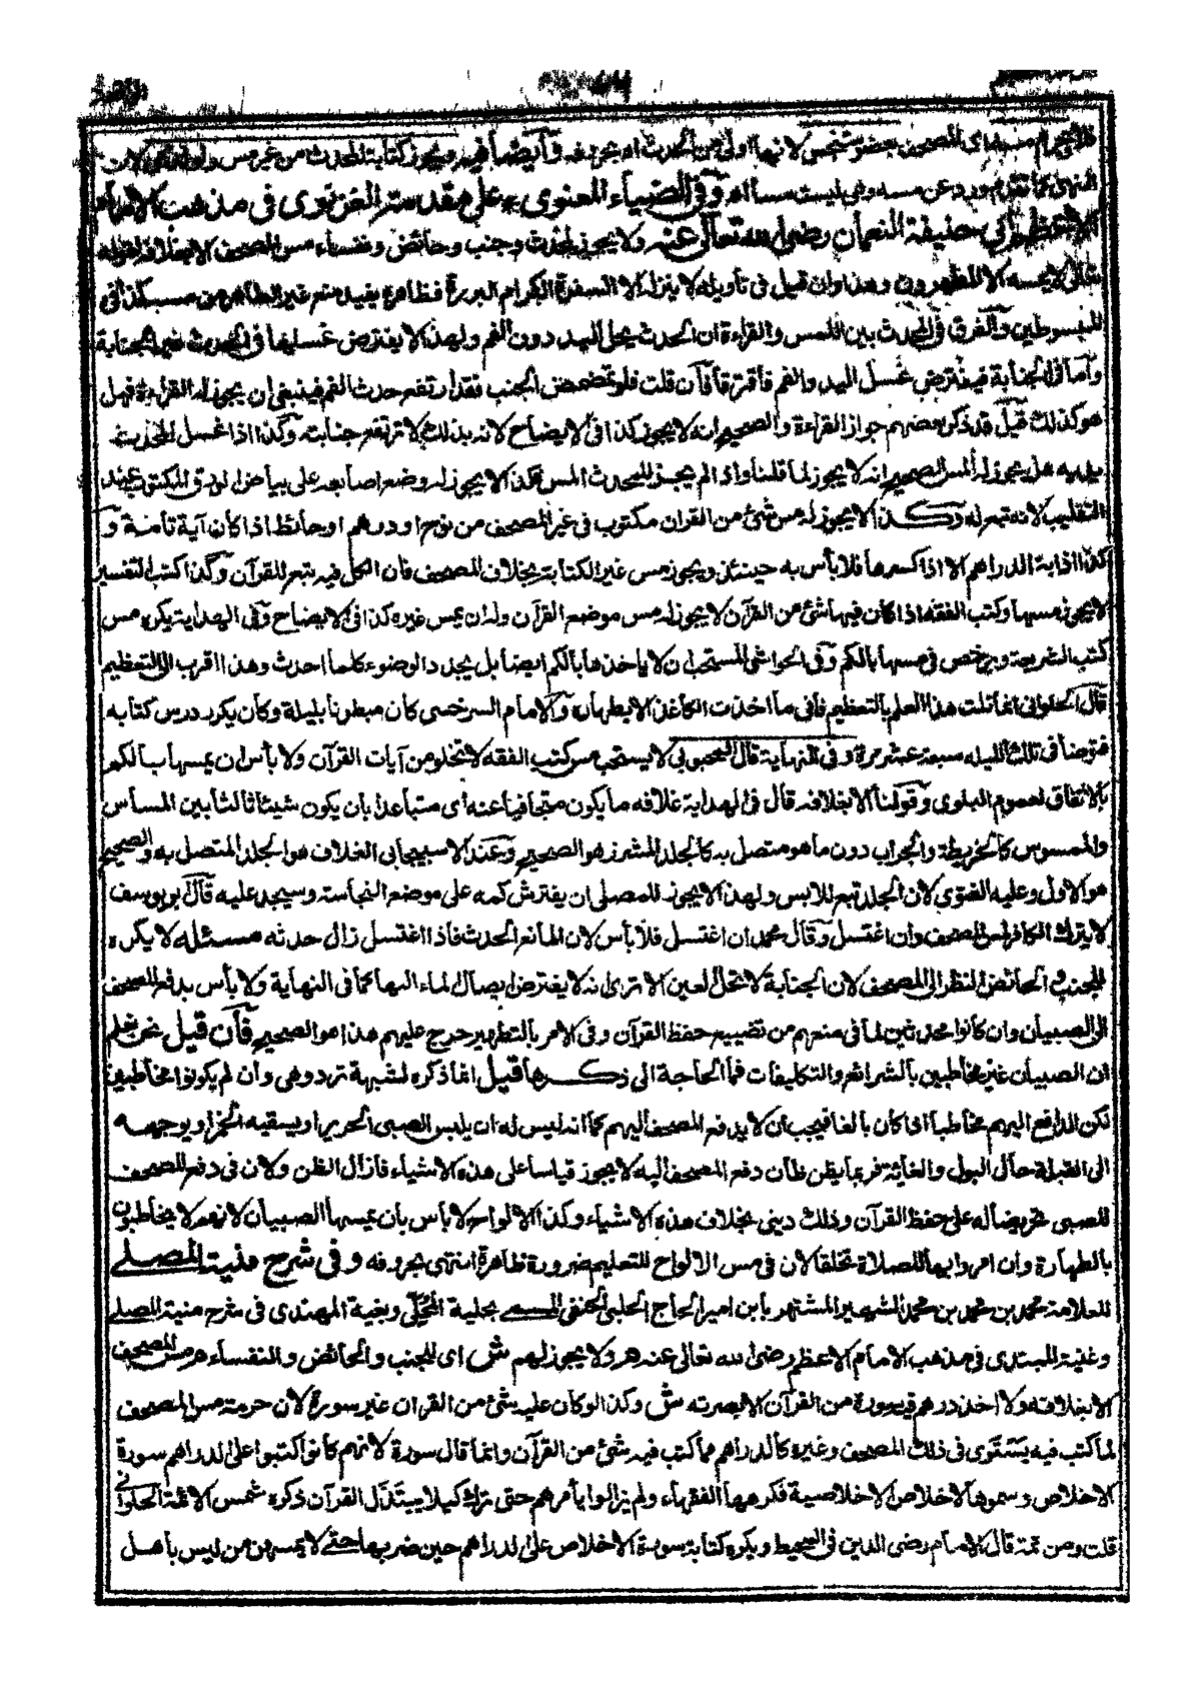 النهى كما تقدم ورد عن مسه وهى ليست مسا اه وفى الضياء المعنوى على مقدمة الغزنوى فى مذهب الامام
الاعظم ابى حنيفة النعمان رضى الله تعالى عنه ولا يجوز لمحدث وجنب وحائض ونفساء مس المصحف الا بغلافه لقوله
تعالى لا يمسه الا المطهرون وهذا وان قيل فى تأويله لا ينزله الا السفرة الكرام البررة فظاهره يفيد منع غير الطاهر من مسه كذا فى
المبسوطين والفرق فى المحدث بين المس والقراءة ان الحدث يحل اليد دون الفم ولهذا لا يفترض غسلها فى الحدث غير الجنابة
واما فى الجنابة فيفترض غسل اليد والفم فافترقا فان قلت فلو تمضمض الجنب فقد ارتفع حدث الفم فينبغى ان يجوز له القراءة فهل
هو كذلك قيل قد ذكر بعضهم جواز القراءة والصحيح انه لا يجوز كذا فى الايضاح لانه بذلك لا ترتفع جنابته وكذا اذا غسل المحدث
يديه هل يجوز له المس الصحيح انه لا يجوز لما قلنا واذا لم يجز للمحدث المس فكذا لا يجوز له وضع اصابعه على بياض الورق المكتوب عند
التقليب لانه تبع له وكذا لا يجوز له مس شئ من القران مكتوب فى غير المصحف من لوح او درهم او حائط اذا كان آية تامة و
كذا اذابة الدراهم الا اذا كسرها فلا بأس به حينئذ ويجوز مس غير الكتابة بخلاف المصحف فان الكل فيه تبع للقرآن وكذا كتب التفسير
لا يجوز مسها وكتب الفقه اذا كان فيها شئ من القرآن لا يجوز له مس موضع القرآن وله ان يمس غيره كذا فى الايضاح وفى الهداية يكره مس
كتب الشريعة ويرخص فى مسها بالكم وفى الحواشى المستحب ان لا ياخذها بالكم ايضا بل يجدد الوضوء كلما احدث وهذا اقرب الى التعظيم
قال الحلوانى انما نلت هذا العلم بالتعظيم فانى ما اخذت الكاغذ الا بطهارة والامام السرخسى كان مبطونا بليلة وكان يكرر درس كتابه
فتوضأ فى تلك الليلة سبعة عشر مرة وفى النهاية قال المحبوبى لا يستحب مس كتب الفقه لا تخلو من آيات القرآن ولا بأس ان يمسها بالكم
بالاتفاق لعموم البلوى وقولنا الا بغلافه قال فى الهداية غلافه ما يكون متجافيا عنه اى متباعدا بان يكون شيئا ثالثا بين الماس
والممسوس كالخريطة والجراب دون ما هو متصل به كالجلد المشرز هو الصحيح وعند الاسبيجابى الغلاف هو الجلد المتصل به والصحيح
هو الاول وعليه الفتوى لان الجلد تبع للابس ولهذا لا يجوز للمصلى ان يفترش كمه على موضع النجاسة وسيجد عليه قال ابو يوسف
لا يترك الكافر لمس المصحف وان اغتسل وقال محمد ان اغتسل فلا بأس لان المانع الحدث فاذا اغتسل زال حدثه مسئله لا يكره
للجنب والحائض النظر الى المصحف لان الجنابة لا تحل العين الا ترى انه لا يفترض ايصال الماء اليها كما فى النهاية ولا بأس بدفع المصحف
الى الصبيان وان كانوا محدثين لما فى منعهم من تضييع حفظ القرآن وفى الامر بالتطهير حرج عليهم هذا هو الصحيح فان قيل نحن نعلم
ان الصبيان غير مخاطبين بالشرائع والتكليفات فما الحاجة الى ذكرها قيل انما ذكره لشبهة ترد وهى وان لم يكونوا مخاطبين
لكن الدافع اليهم مخاطب اذا كان بالغا فيجب ان لا يدفع المصحف اليهم كما انه ليس له ان يلبس الصبى الحرير او يسقيه الخمر او يوجهه
الى القبلة حال البول والغائط فربما يظن ظان دفع المصحف اليه لا يجوز قياسا على هذه الاشياء فازال الظن ولان فى دفع المصحف
للصبى تحريضا له على حفظ القرآن وذلك دينى بخلاف هذه الاشياء وكذا الالواح لا بأس بان يمسها الصبيان لانهم لا يخاطبون
بالطهارة وان امروا بها للصلاة تخلقا لان فى مس الالواح للتعليم ضرورة ظاهرة انتهى بحروفه وفى شرح منية المصلى
للعلامة محمد بن محمد بن محمد الشهير المشتهر بابن امير الحاج الحلبى الحنفى المسمى بحلية المحلى وبغية المهتدى فى شرح منية المصلى
وغنية المبتدى فى مذهب الامام الاعظم رضى الله تعالى عنه هم ولا يجوز لهم ش اى للجنب والحائض والنفساء هم مس المصحف
الا بغلافه ولا اخذ درهم فيه سورة من القرآن الا بصرته ش وكذا لو كان عليه شئ من القران غير سورة لان حرمة مس المصحف
لما كتب فيه يستوى فى ذلك المصحف وغيره كالدراهم مما كتب فيه شئ من القرآن وانما قال سورة لانهم كانوا كتبوا على الدراهم سورة
الاخلاص وسموها الاخلاص الاخلاصية فكرهها الفقهاء ولم يزالوا بامرهم حتى ترك كيلا يبتذل القرآن ذكره شمس الائمة الحلوانى
قلت ومن ثمة قال الامام رضى الدين فى المحيط ويكره كتابة سورة الاخلاص على الدراهم حين ضربها حتى لا يمسه من ليس باهل